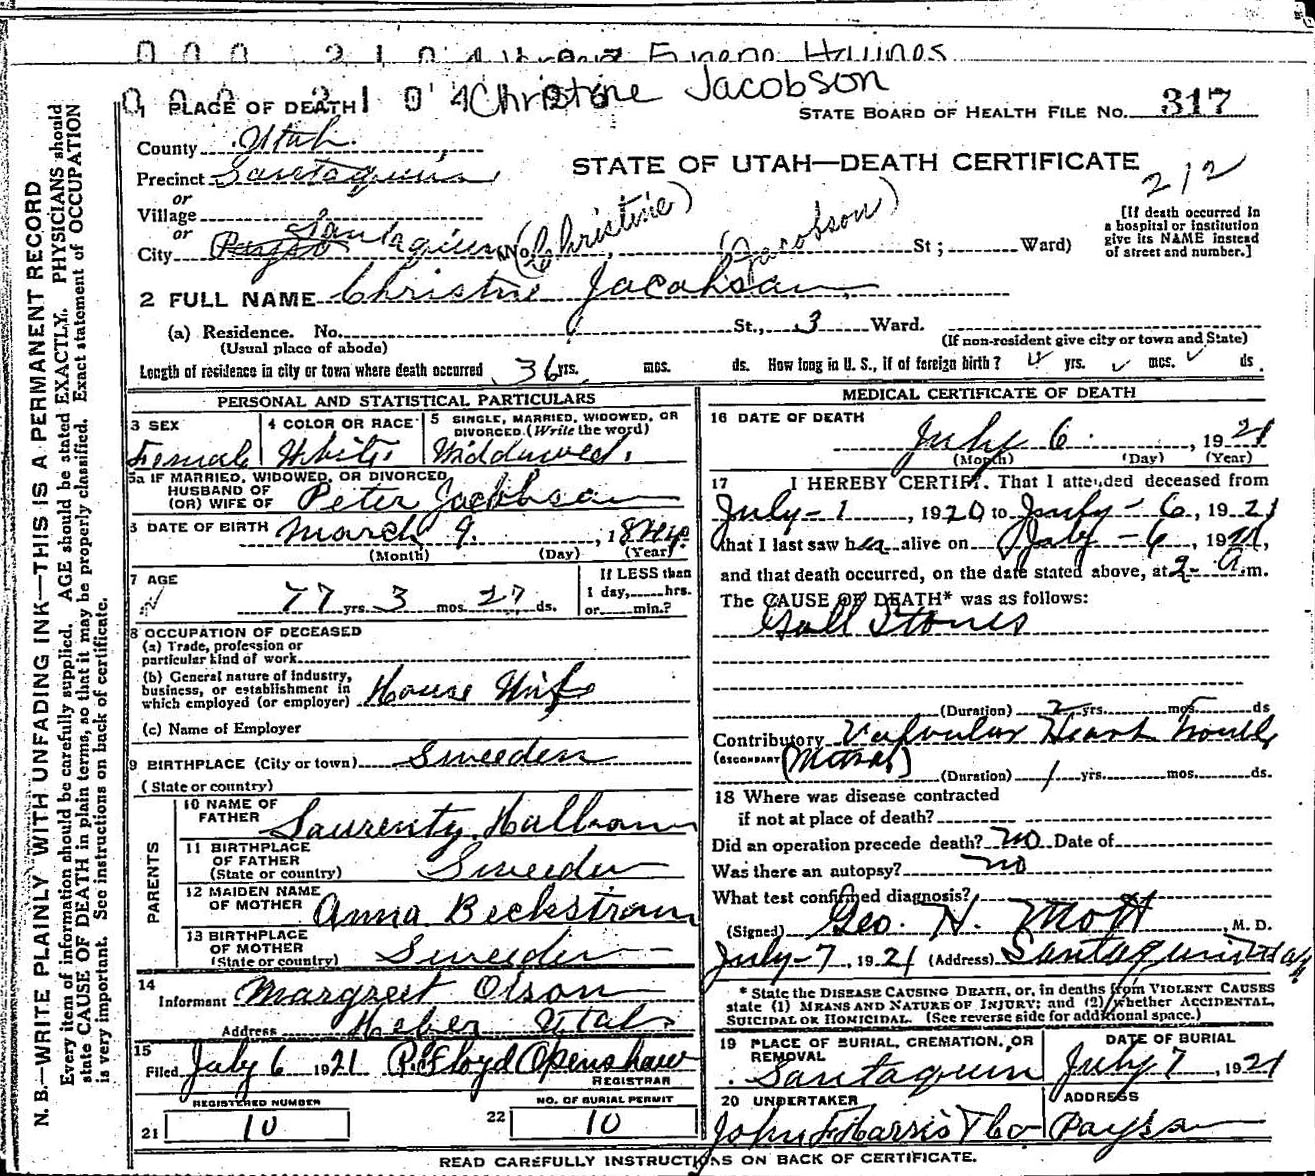 Christine Jacobson
1 PLACE OF DEATH
STATE BOARD OF HEALTH FILE No. 317
County Utah
STATE OF UTAH—DEATH CERTIFICATE
212
Precinct Santaquin
or
Village
or
City Payson Santaquin No. (Christine Jacobson) St; Ward)
[If death occurred in
a hospital or institution
give its NAME instead
of street and number.]
2 FULL NAME Christine Jacobson
(a) Residence. No. St., 3 Ward.
(Usual place of abode) (If non-resident give city or town and State)
Length of residence in city or town where death occurred 36 yrs. mos. ds. How long in U. S., if of foreign birth? yrs. mos. ds.
PERSONAL AND STATISTICAL PARTICULARS
3 SEX
Female
4 COLOR OR RACE
White
5 SINGLE, MARRIED, WIDOWED, OR
DIVORCED (Write the word)
Widdowed.
5a IF MARRIED, WIDOWED, OR DIVORCED
HUSBAND OF
(OR) WIFE OF Peter Jacobson
6 DATE OF BIRTH March 9, 1844
(Month) (Day) (Year)
7 AGE
77 yrs. 3 mos. 27 ds.
If LESS than
1 day, hrs.
or min.?
8 OCCUPATION OF DECEASED
(a) Trade, profession or
particular kind of work
(b) General nature of industry,
business, or establishment in
which employed (or employer) House Wife
(c) Name of Employer
9 BIRTHPLACE (City or town) Sweeden
(State or country)
PARENTS
10 NAME OF
FATHER
11 BIRTHPLACE
OF FATHER
(State or country) Sweeden
12 MAIDEN NAME
OF MOTHER Anna Beckstrom
13 BIRTHPLACE
OF MOTHER
(State or country) Sweeden
14
Informant Margreet Olson
Address Heber Utah
15
Filed July 6 1921 P. Floyd Openshaw
REGISTRAR
REGISTERED NUMBER
21 10
NO. OF BURIAL PERMIT
22 10
MEDICAL CERTIFICATE OF DEATH
16 DATE OF DEATH
July 6, 1921
(Month) (Day) (Year)
17 I HEREBY CERTIFY. That I attended deceased from
July - 1, 1920 to July - 6, 1921
that I last saw her alive on July - 6, 1921,
and that death occurred, on the date stated above, at 2 - a.m.
The CAUSE OF DEATH* was as follows:
Gall Stones
(Duration) 2 yrs. mos. ds
Contributory Valvular Heart trouble
(SECONDARY) (Mitral)
(Duration) 1 yrs. mos. ds.
18 Where was disease contracted
if not at place of death?
Did an operation precede death? no Date of
Was there an autopsy? no
What test confirmed diagnosis?
(Signed) Geo. H. Mott M. D.
July - 7, 1921 (Address) Santaquin Utah
* State the DISEASE CAUSING DEATH, or, in deaths from VIOLENT CAUSES
state (1) MEANS AND NATURE OF INJURY; and (2) whether ACCIDENTAL,
SUICIDAL OR HOMICIDAL. (See reverse side for additional space.)
19 PLACE OF BURIAL, CREMATION, OR
REMOVAL
Santaquin
DATE OF BURIAL
July 7, 1921
20 UNDERTAKER
John F Harris & Co
ADDRESS
Payson
READ CAREFULLY INSTRUCTIONS ON BACK OF CERTIFICATE.
N. B.—WRITE PLAINLY WITH UNFADING INK—THIS IS A PERMANENT RECORD
Every item of information should be carefully supplied. AGE should be stated EXACTLY. PHYSICIANS should
state CAUSE OF DEATH in plain terms, so that it may be properly classified. Exact statement of OCCUPATION
is very important. See instructions on back of certificate.